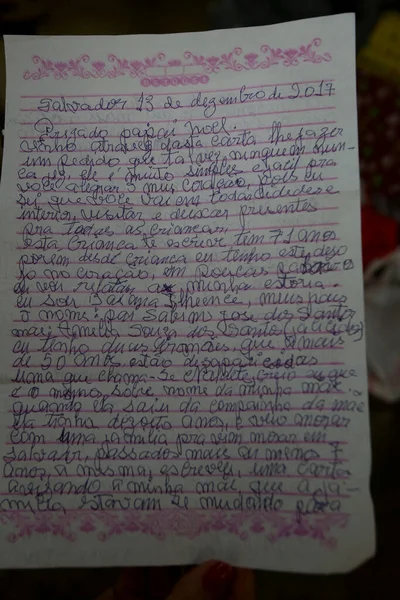 Salvador 13 de dezembro de 2.017
Prezado papai noel.
venho através desta carta lhe fazer
um pedido que talvez ninguem nun-
ca fez, ele é muito simples e facil pra
você alegrar o meu coração, pois eu
sei que você vai em todas cidades e
interior, visitar e deixar presentes
pra todas as crianças,
esta criança te escreve, tem 71 anos
porem desde criança eu tenho este dese
jo no coração, em poucas
eu vou relatar a minha estoria.
eu sou baiana, meus pais
o nome: pai Sabino jose dos Santos
mae Amelia Souza dos Santos
eu tinho duas irmães, que a mais
de 50 anos estão desaparecidas
uma que chama-se creio eu que
é o mesmo sobre nome da minha mae
quando ela saiu da companhia da mae
ela tinha dezoito anos, e veio morar
com uma familia pra vim morar em
Salvador, passados mais ou menos 7
anos, a mesma, escreveu, uma carta
avisando a minha mae que a fa-
milia estavam se mudando para